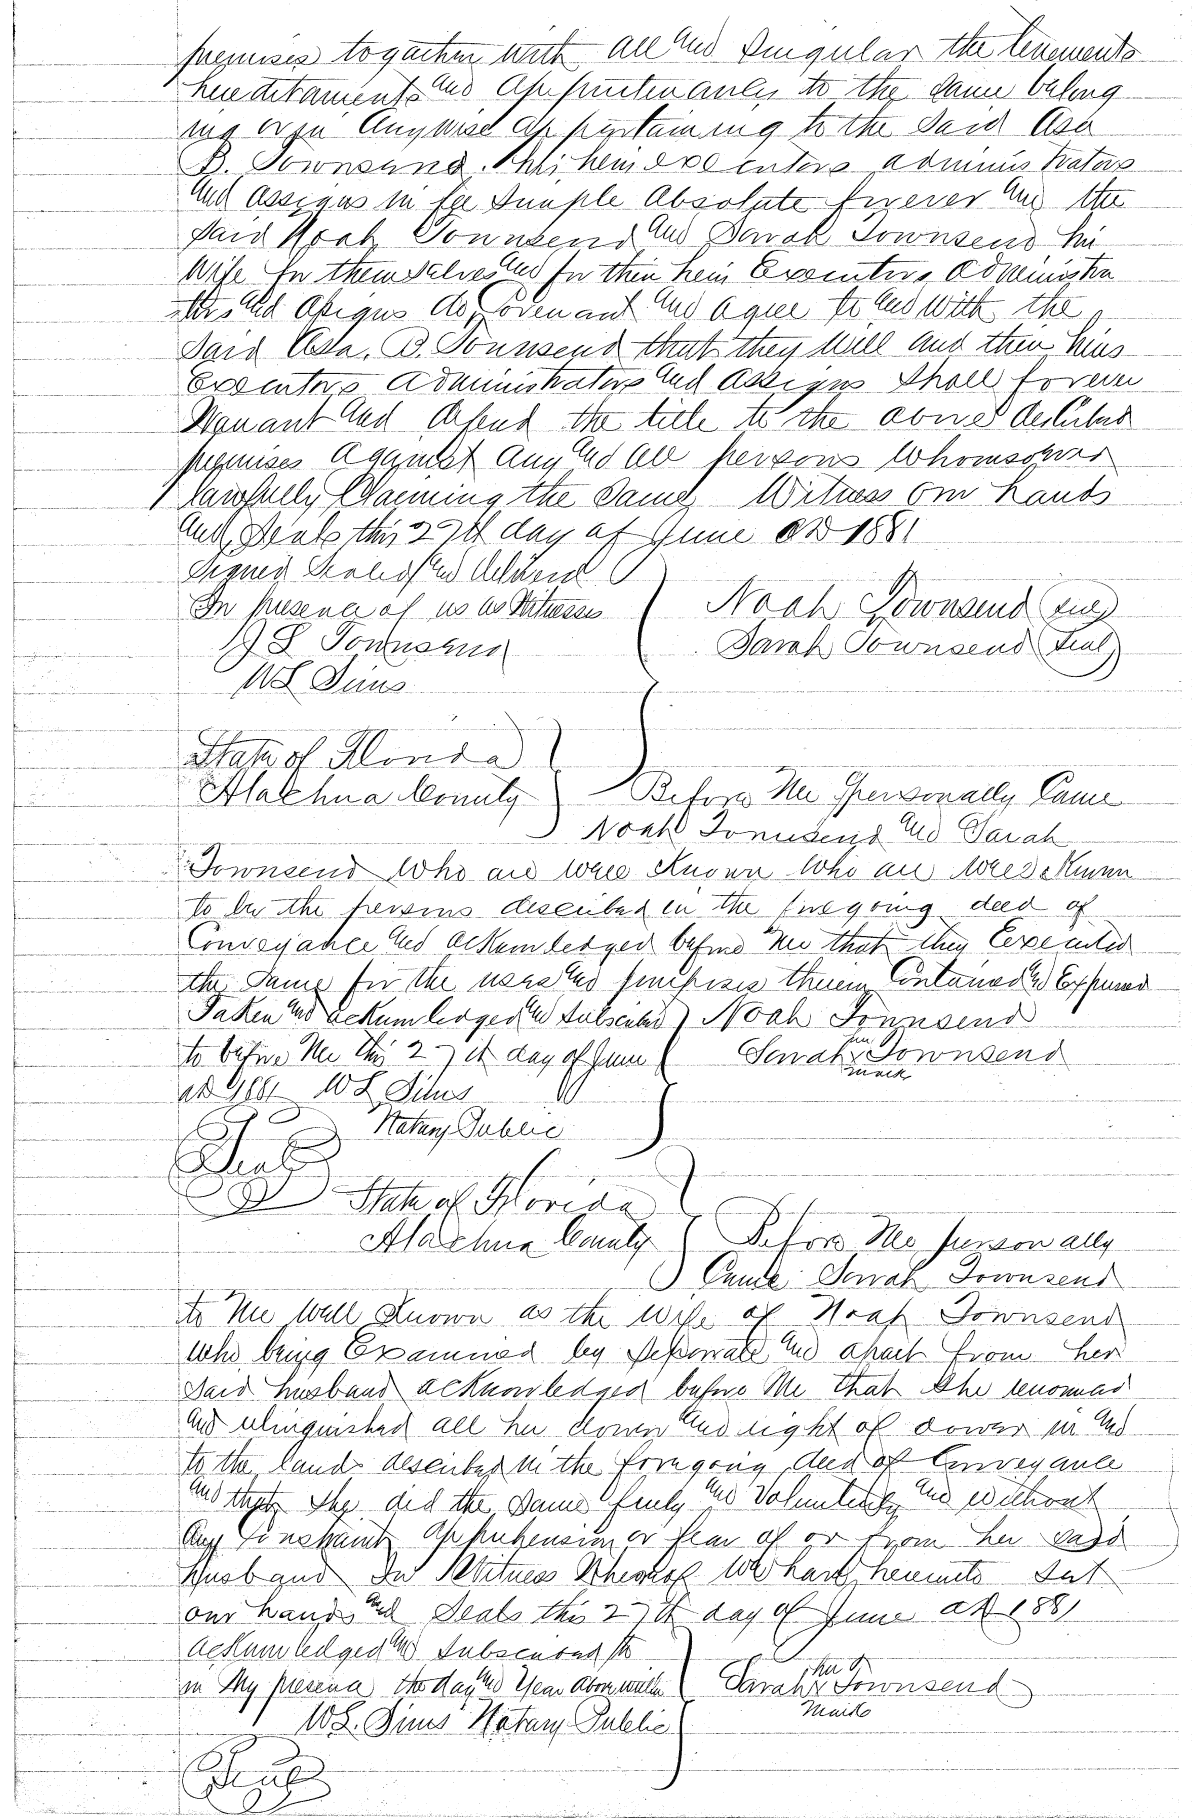 premises together with all and singular the tenements
hereditaments and appurtenances to the same belong
ing or in anywise appertaining to the said Asa
B. Townsend. his heirs executors administrators
and assigns in fee simple absolute forever and the
said Noah Townsend and Sarah Townsend his
Wife for themselves and for their heirs Executors administra
tors and assigns do covenant and agree to and with the
said Asa. B. Townsend that they will and their heirs
Executors administrators and assigns shall forever
Warrant and defend the title to the above described
premises against any and all persons whomsoever
lawfully claiming the same Witness our hands
and Seals this 27th day of June AD 1881
Signed Sealed and delivered
In presence of us as Witnesses
Noah Townsend (Seal)
J S Townsend
Sarah Townsend (Seal)
W L Sims
State of Florida
Alachua County
Before Me personally Came
Noah Townsend and Sarah
Townsend Who are well Known Who are well Known
to be the persons described in the foregoing deed of
Conveyance and acknowledged before me that they Executed
the same for the uses and purposes therein Contained and Expressed
Taken and acknowledged and subscribed
Noah Townsend
to before Me this 27th day of June
her
Sarah x Townsend
mark
AD 1881 W L Sims
Notary Public
Seal
State of Florida
Alachua County
Before Me personally
Came Sarah Townsend
to Me Well Known as the Wife of Noah Townsend
who being Examined by Seperate and apart from her
said husband acknowledged before Me that she renounced
and relinquished all her dower and right of dower in and
to the lands described in the foregoing deed of Conveyance
and that she did the same freely and Voluntarily and without
any Constraint apprehension or fear of or from her said
Husband In Witness Whereof We have hereunto Set
our hands and Seals this 27th day of June AD 1881
acknowledged and subscribed to
in My presence the day and Year above written
her
Sarah x Townsend
mark
W L. Sims Notary Public
Seal